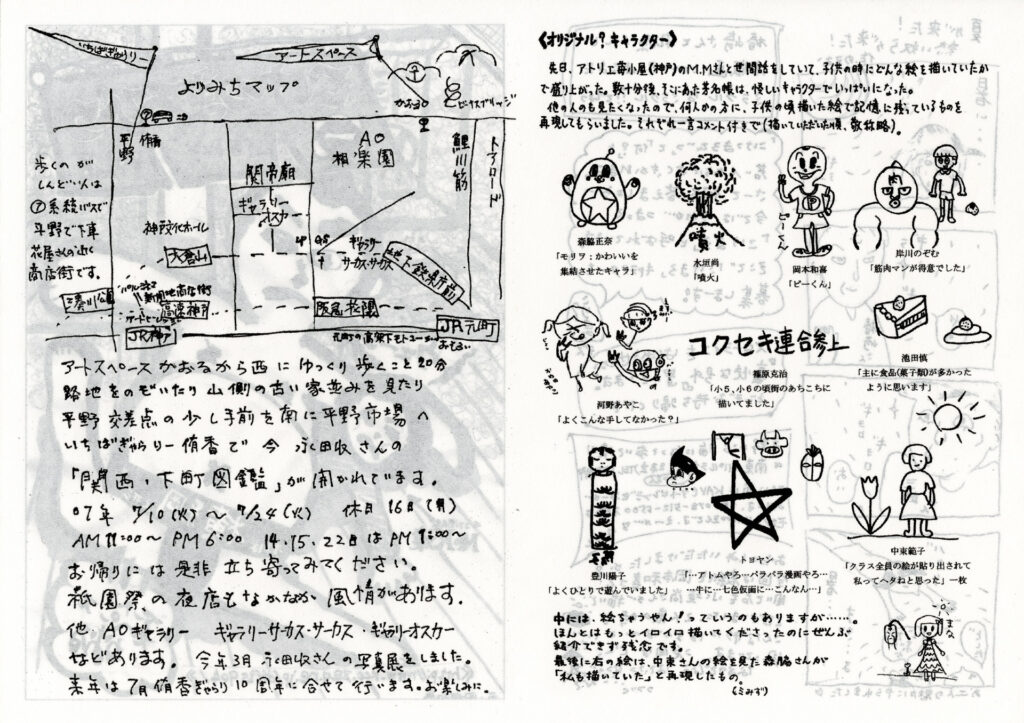 いちばぎゃらりー
アートスペース
よりみちマップ
かおる
ビーナスブリッジ
平野
侑香
AO
相楽園
鯉川筋
トアロード
関帝廟
ギャラリー
オスカー
歩くのが
しんどい人は
⑦系統バスで
平野で下車
花屋さんの近く
商店街です。
神戸文化ホール
大倉山
ギャラリー
サーカス・サーカス
地下鉄県庁前
湊川公園
新開地商店街
高速神戸
阪急花隈
JR神戸
元町の高架下モトコー
JR元町
アートスペースかおるから西にゆっくり歩くこと20分
路地をのぞいたり山側の古い家並みを見たり
平野交差点の少し手前を南に平野市場へ
いちばぎゃらりー侑香で今 永田収さんの
「関西・下町図鑑」が開かれています。
07年 7/10(火)〜7/24(火) 休日16日(月)
AM11:00〜PM6:00 14.15.22日はPM1:00〜
お帰りには是非立ち寄ってみてください。
祇園祭の夜店もなかなか風情があります。
他 AOギャラリー ギャラリーサーカス・サーカス・ギャラリーオスカー
などあります。今年3月永田収さんの写真展をしました。
来年は7月侑香ぎゃらり10周年に合せて行います。お楽しみに。
《オリジナル?キャラクター》
先日、アトリエ苺小屋(神戸)のM.Mさんと世間話をしていて、子供の時にどんな絵を描いていたか
で盛り上がった。数十分後、そこにあった芳名帳は、怪しいキャラクターでいっぱいになった。
他の人のも見たくなったので、何人かの方に、子供の頃描いた絵で記憶に残っているものを
再現してもらいました。それぞれ一言コメント付きで(描いていただいた順、敬称略)。
森脇正奈
「モリヲ:かわいいを
集結させたキャラ」
噴火
水垣尚
「噴火」
ピーくん
岡本和喜
「ピーくん」
肉
岸川のぞむ
「筋肉マンが得意でした」
河野あやこ
「よくこんな手してなかった?」
コクセキ連合参上
篠原克治
「小5、小6の頃街のあちこちに
描いてました」
池田慎
「主に食品(菓子類)が多かった
ように思います」
豊川陽子
「よくひとりで遊んでいました」
トヨヤン
「…アトムやろ…パラパラ漫画やろ…
…牛に…七色仮面に…こんなん…」
中東範子
「クラス全員の絵が貼り出されて
私ってヘタねと思った」一枚
まな
中には、絵ちゃうやん!っていうのもありますが……。
ほんとはもっとイロイロ描いてくださったのにぜんぶ
紹介できず残念です。
最後に右の絵は、中東さんの絵を見た森脇さんが
「私も描いていた」と再現したもの。
(ミみず)